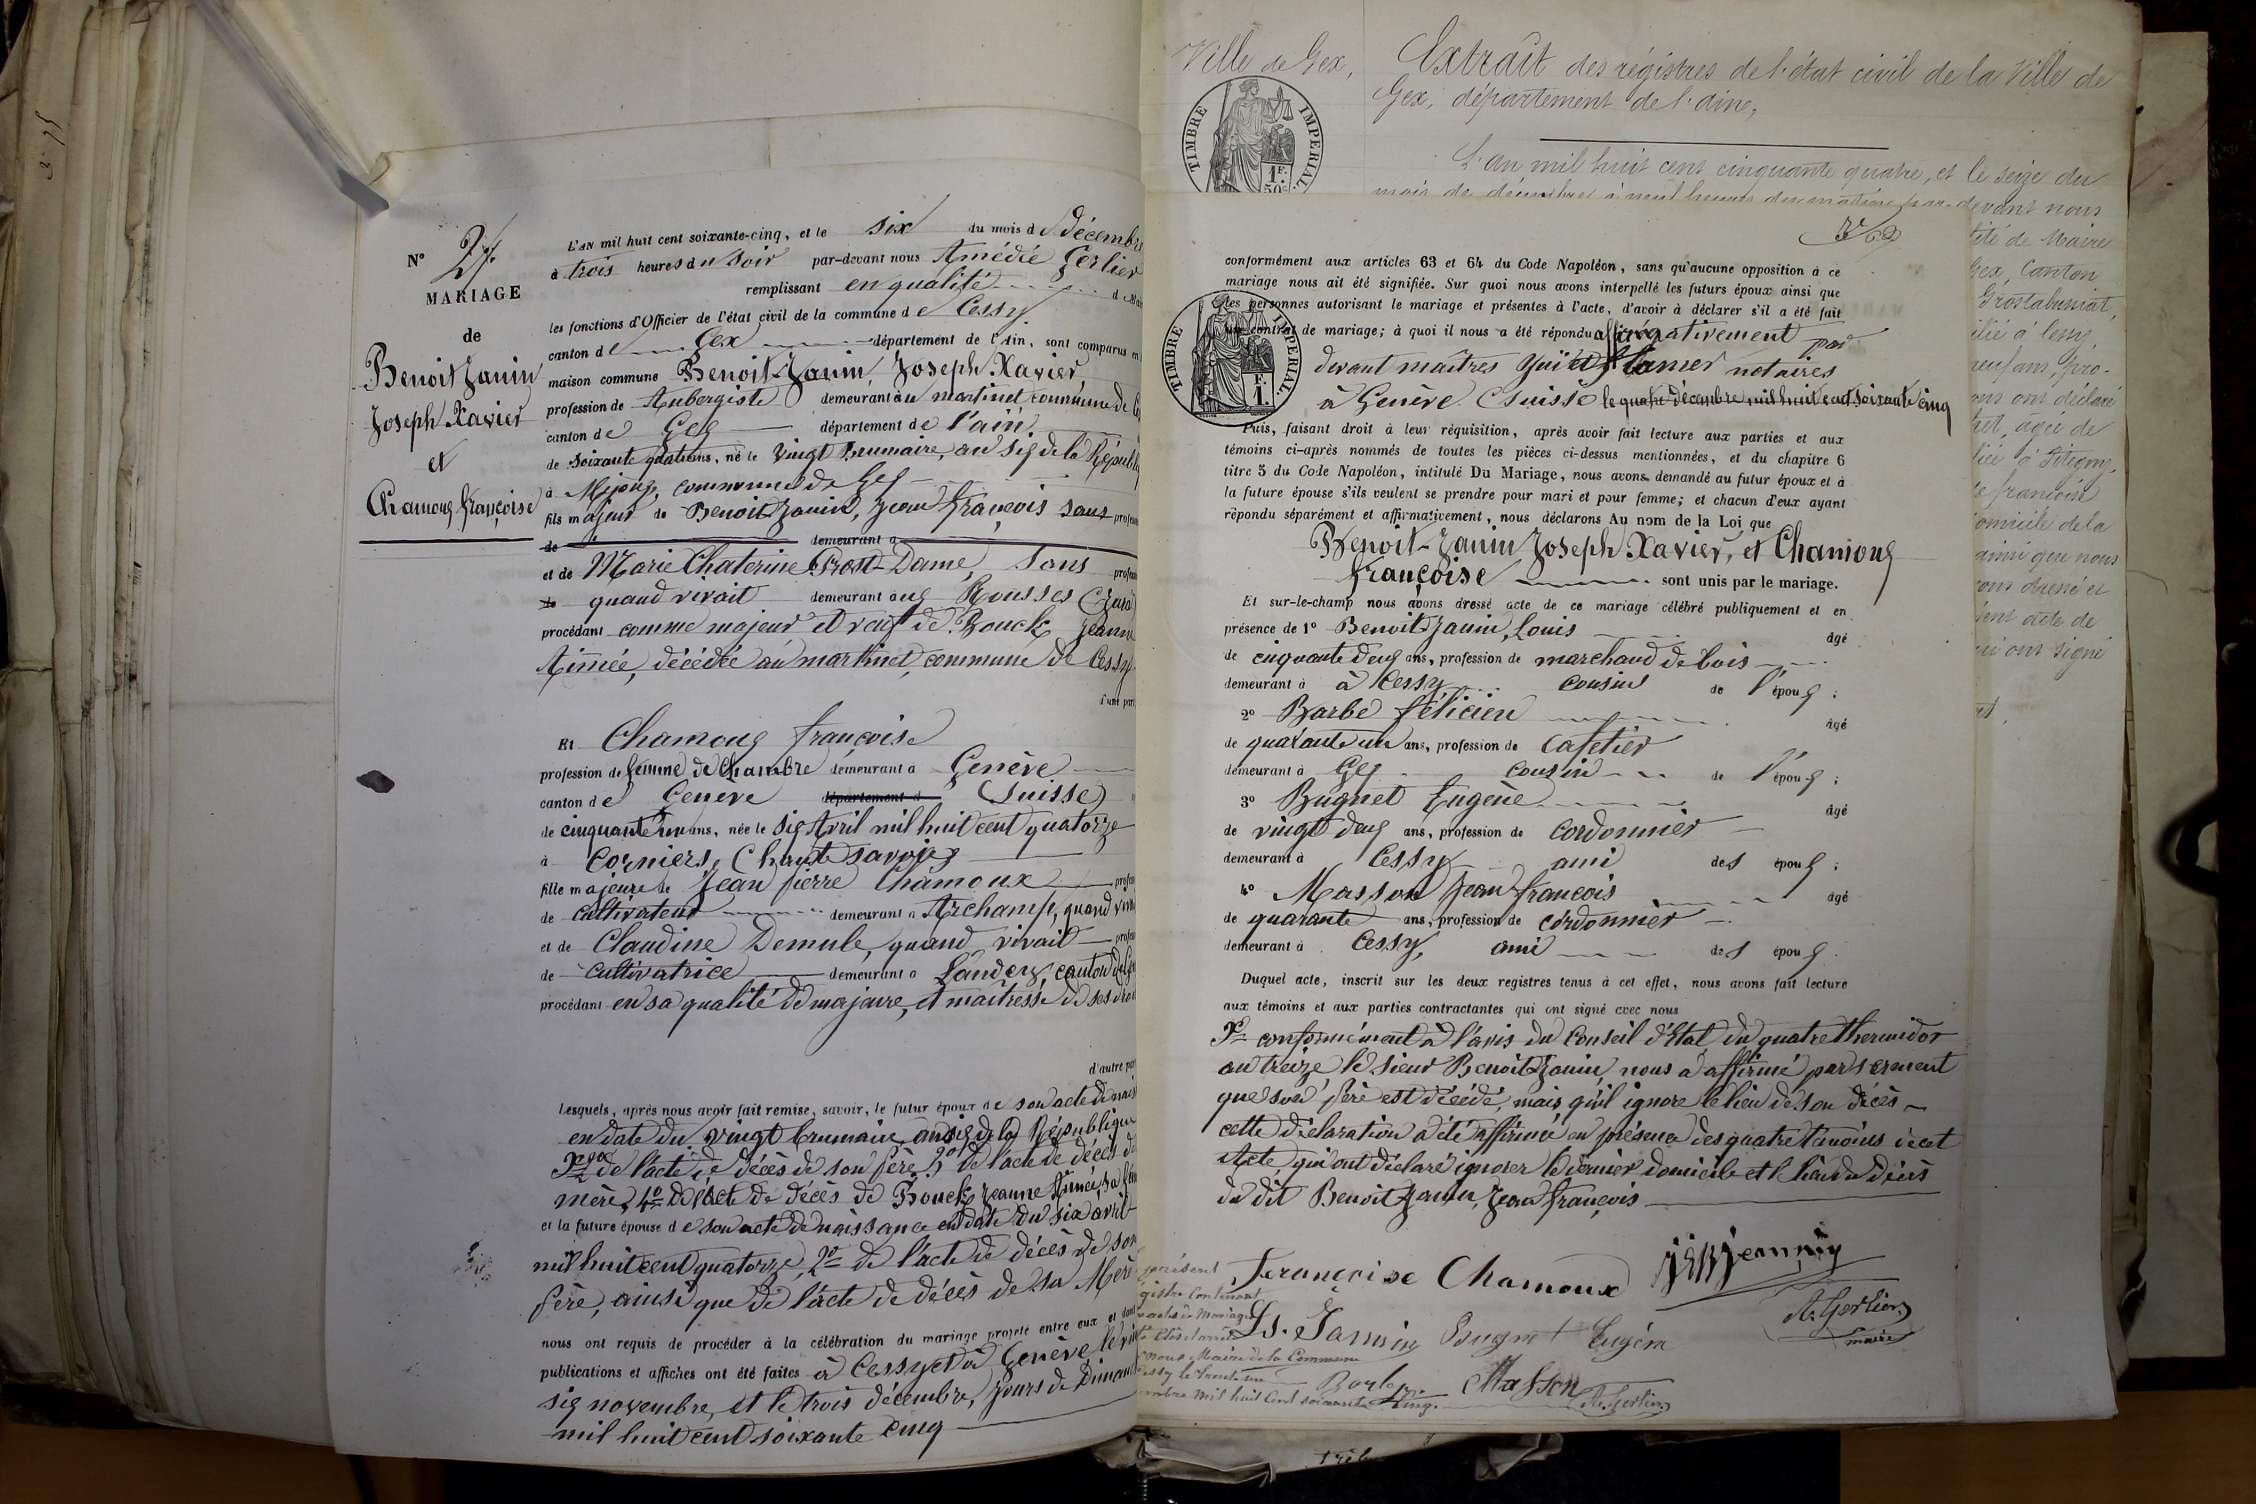 N° 27
MARIAGE
de
Benoit Janin
Joseph Xavier
et
Chamoux françoise
L'AN mil huit cent soixante-cinq, et le six du mois de décembre
à trois heures du soir par-devant nous Amédée Gerlier
remplissant en qualité
les fonctions d'Officier de l'état civil de la commune de Cessy
canton de Gex département de l'Ain, sont comparus en
maison commune Benoit-Janin, Joseph Xavier,
profession de Aubergiste demeurant au martinet commune de
canton de Gex département de l'ain
de soixante quatre ans, né le vingt Brumaire, an six de la Républ
à Mijoux, commune de Gex
fils majeur de Benoit Janin, Jean françois sans profes
de demeurant à
et de Marie Chaterine Prost-Dame, sans profes
de quand vivait demeurant aux Rousses (Jura)
procédant comme majeur et veuf de Bouck Jeanne
Aimée, décédée au martinet, commune de Cessy
d'une part
Et Chamoux françoise
profession de femme de chambre demeurant à Genève
canton de Genève département d (Suisse)
de cinquante un ans, née le six Avril mil huit cent quatorze
à (haute savoie)
fille majeure de Jean pierre Chamoux profes
de cultivateur demeurant à Archamp, quand viv
et de Claudine Demule, quand vivait profes
de cultivatrice demeurant à canton de
procédant en sa qualité de majeure, et maitresse de ses droits
d'autre part
Lesquels, après nous avoir fait remise, savoir, le futur époux de son acte de nais
en date du vingt brumaire, an six de la République
2° de l'acte de décès de son père 3° de l'acte de décès de
mère, 4° de l'acte de décès de Bouck Jeanne Aimée, sa
et la future épouse de son acte de naissance en date du six avril
mil huit cent quatorze, 2° de l'acte de décès de son
père, ainsi que de l'acte de décès de sa Mère
nous ont requis de procéder à la célébration du mariage projeté entre eux et dont
publications et affiches ont été faites à Cessy et à Genève le vin
six novembre, et le trois décembre, jours de Dimanc
mil huit cent soixante cinq
Ville de Gex,
TIMBRE IMPERIAL
1F. 50c
Extrait des régistres de l'état civil de la Ville de
Gex, département de l'aine,
L'an mil huit cent cinquante quatre, et le seize du
mois de décembre à neuf heures du matin par-devant nous
tité de Maire
Gex, Canton
ons ont déclaré
agée de
françois
domicile de la
ainsi que nous
ont acte de
ui ont signé
conformément aux articles 63 et 64 du Code Napoléon, sans qu'aucune opposition à ce
mariage nous ait été signifiée. Sur quoi nous avons interpellé les futurs époux ainsi que
les personnes autorisant le mariage et présentes à l'acte, d'avoir à déclarer s'il a été fait
un contrat de mariage; à quoi il nous a été répondu affirmativement par
devant maîtres notaires
à Genève (Suisse le quatre décembre mil huit cent soixante cinq
TIMBRE IMPERIAL.
F. 1.
Puis, faisant droit à leur réquisition, après avoir fait lecture aux parties et aux
témoins ci-après nommés de toutes les pièces ci-dessus mentionnées, et du chapitre 6
titre 5 du Code Napoléon, intitulé Du Mariage, nous avons demandé au futur époux et à
la future épouse s'ils veulent se prendre pour mari et pour femme; et chacun d'eux ayant
répondu séparément et affirmativement, nous déclarons Au nom de la Loi que
Benoit-Janin Joseph Xavier, et Chamoux
françoise sont unis par le mariage.
Et sur-le-champ nous avons dressé acte de ce mariage célébré publiquement et en
présence de 1° Benoit Janin, Louis âgé
de cinquante deux ans, profession de marchand de bois
demeurant à à Cessy cousin de l'époux ;
2° Barbe félicien âgé
de quarante un ans, profession de cafetier
demeurant à Gex cousin de l'époux ;
3° Bugnet Eugène âgé
de vingt deux ans, profession de cordonnier
demeurant à Cessy ami des époux ;
4° Masson Jean françois âgé
de quarante ans, profession de cordonnier
demeurant à Cessy, ami des époux
Duquel acte, inscrit sur les deux registres tenus à cet effet, nous avons fait lecture
aux témoins et aux parties contractantes qui ont signé avec nous
conformément à l'avis du Conseil d'Etat du quatre thermidor
an treize le sieur Benoit Janin nous a affirmé par serment
que son père est décédé, mais qu'il ignore le lieu de son décès
cette déclaration a été affirmée en présence des quatre témoins de cet
Acte, qui ont déclaré ignorer le dernier domicile et le lieu du décès
du dit Benoit Janin, Jean françois
Françoise Chamoux
A. Gerlier
maire
Ls. Jannin Bugnet Eugéne
Barbe Masson A. Gerlier
présent
gistre Contenant
actes de Mariage
nous, Maire de la Commune
essy le trente un
embre mil huit Cent soixante cinq.